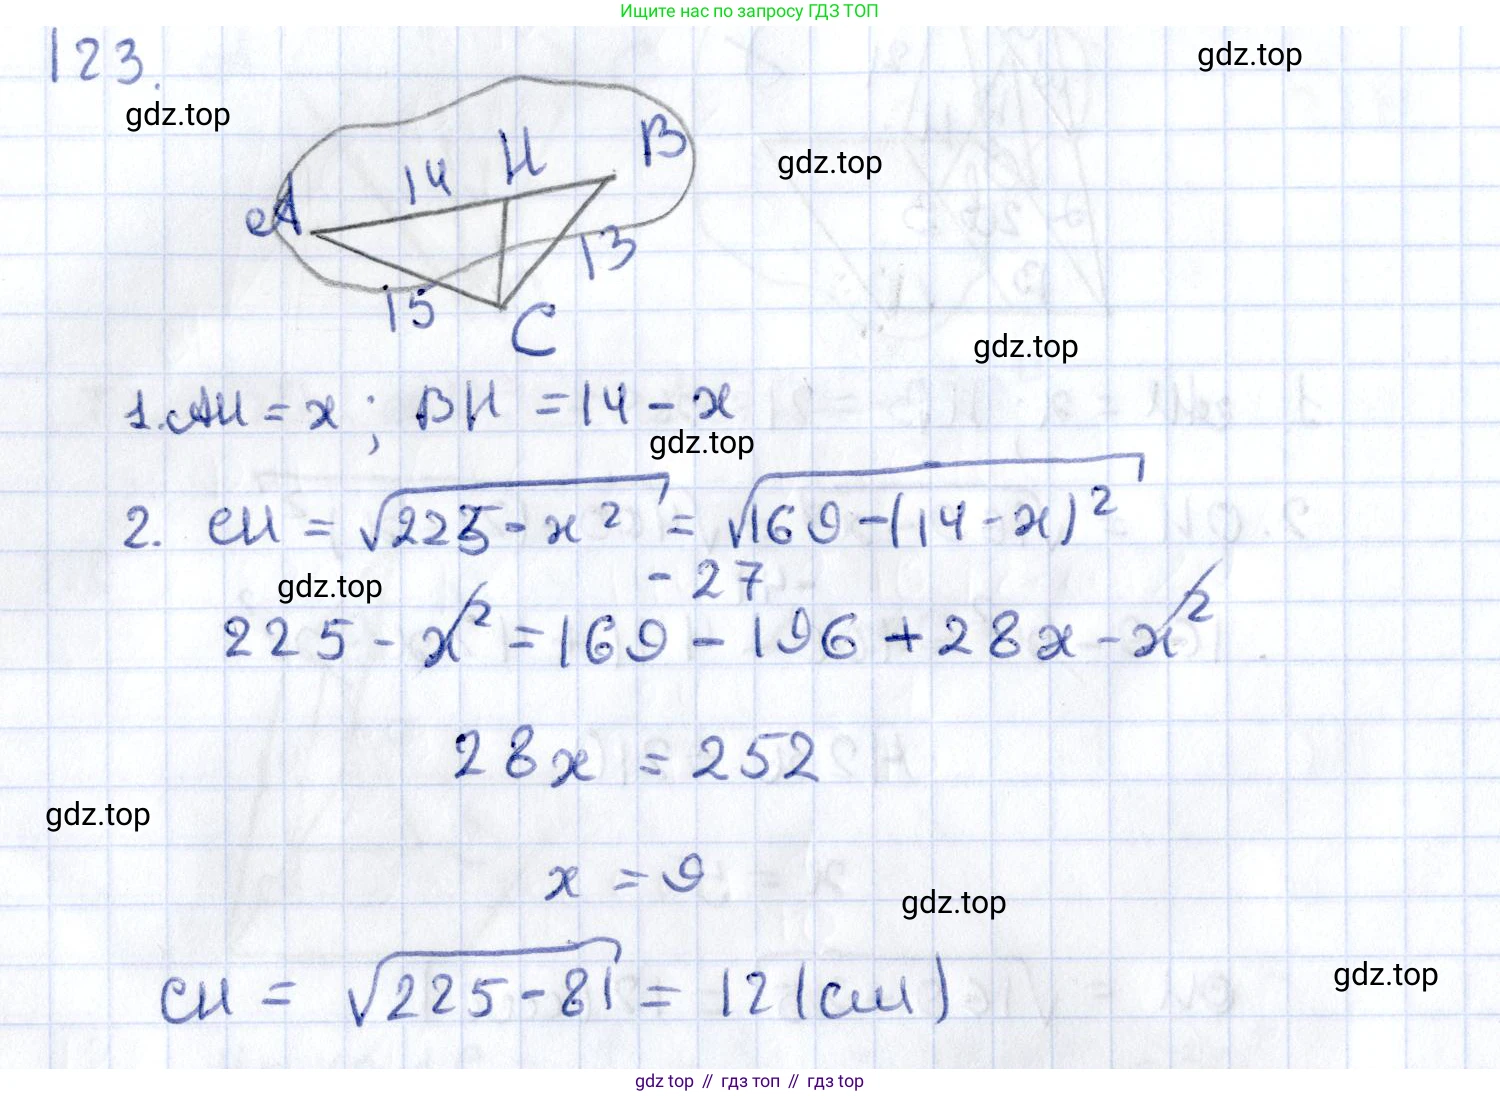 Ищите нас по запросу ГДЗ ТОП
123.
gdz.top
gdz.top
gdz.top
A 14 H B
15 13
C
gdz.top
1. AH = x ; BH = 14 - x
gdz.top
2. CH = √225 - x² = √169 - (14 - x)²
gdz.top
gdz.top
- 27
225 - x² = 169 - 196 + 28x - x²
28x = 252
gdz.top
x = 9
gdz.top
gdz.top
CH = √225 - 81 = 12 (см)
gdz.top // гдз топ // гдз top